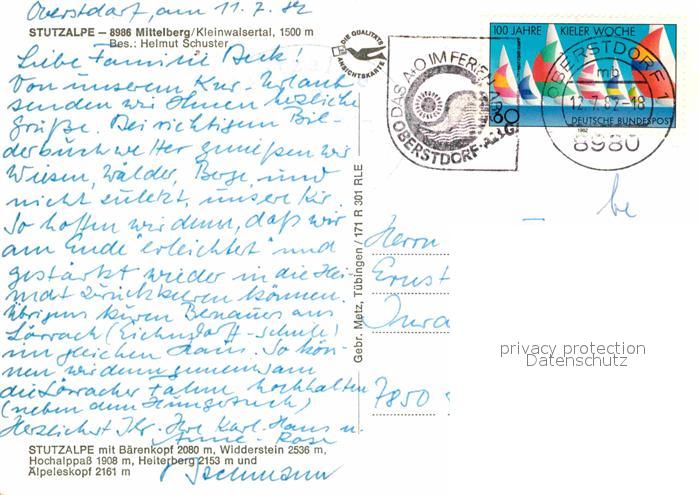 Oberstdorf, am 11.7.82
STUTZALPE – 8986 Mittelberg/Kleinwalsertal, 1500 m
Bes.: Helmut Schuster
DIE QUALITÄTS
ANSICHTSKARTE
Liebe Familie
Von unserem Kur-Urlaub
senden wir Ihnen herzliche
Grüße. Bei richtigem Bil-
derbuchwetter genießen wir
Wiesen, Wälder, Berge und
nicht zuletzt, unsere Kur.
So hoffen wir denn, daß wir
am Ende "erleichtet" und
gestärkt wieder in die Hei-
mat zurückkehren können.
Übrigens kuren Bekannte aus
Lörrach (Eichendorff-Schule!
im gleichen Haus. So kön-
nen wir denn gemeinsam
die Lörracher Fahne hochhalten
(neben dem Hungertuch)
Herzlichst Ihr. Ihre Karl-Hans u.
Anne-Rose
STUTZALPE mit Bärenkopf 2080 m, Widderstein 2536 m,
Hochalppaß 1908 m, Heiterberg 2153 m und
Älpeleskopf 2161 m
Gebr. Metz, Tübingen / 171 R 301 RLE
DAS A·O IM FERIEN
OBERSTDORF
100 JAHRE KIELER WOCHE
60
DEUTSCHE BUNDESPOST
1982
OBERSTDORF 1
mb
12.7.82-18
8980
Herrn
Ernst
7850
privacy protection
Datenschutz